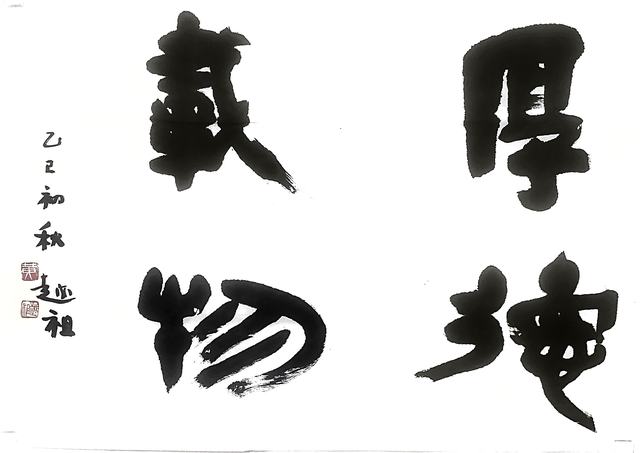 厚德
載物
乙巳初秋
趣祖